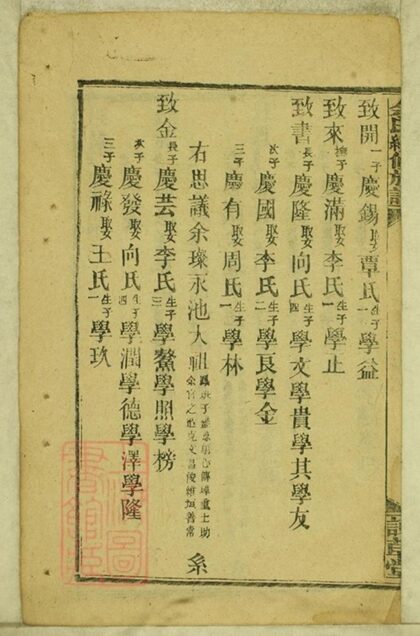 致開一子慶錫娶覃氏生子一學益
致來撫子慶滿娶李氏生子一學止
致書長子慶隆娶向氏生子四學文學貴學其學友
次子慶國娶李氏生子二學良學金
三子慶有娶周氏生子一學林
右思議余璨永池大祖 系
致金長子慶芸娶李氏生子三學鰲學照學榜
次子慶發娶向氏生子四學潤學德學澤學隆
三子慶祿娶王氏生子一學玖